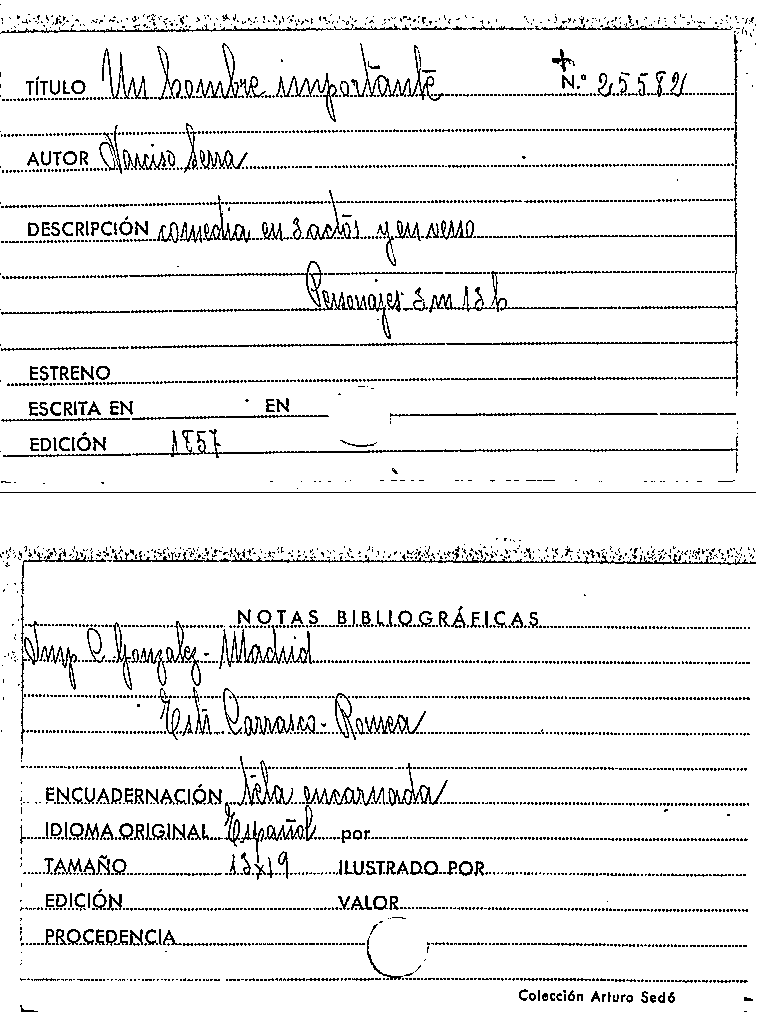 TÍTULO Un hombre importante N.º 25582
AUTOR Narciso Serra
DESCRIPCIÓN comedia en 3 actos y en verso
Personajes 3 m 13 h
ESTRENO
ESCRITA EN EN
EDICIÓN 1857
NOTAS BIBLIOGRÁFICAS
Imp C. Gonzalez - Madrid
Estr Carrasco - Romea
ENCUADERNACIÓN tela encarnada
IDIOMA ORIGINAL Español por
TAMAÑO 13x19 ILUSTRADO POR
EDICIÓN VALOR
PROCEDENCIA
Colección Arturo Sedó